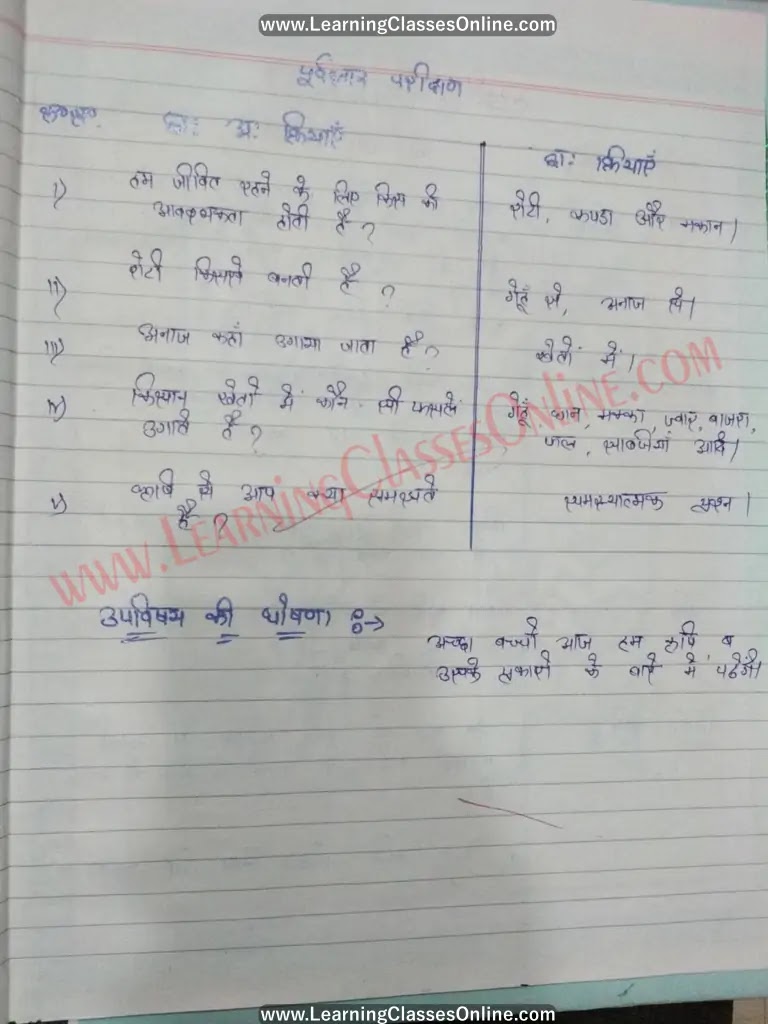 www.LearningClassesOnline.com
पूर्वज्ञान परीक्षण
क्र०स०. छा: अ: क्रियाएँ
छा: क्रियाएँ
i) हम जीवित रहने के लिए किस की
आवश्यकता होती है ?
रोटी, कपडा और मकान।
ii) रोटी किससे बनती है ?
गेहूँ से, अनाज से।
iii) अनाज कहाँ उगाया जाता है ?
खेतों में।
iv) किसान खेतों में कौन सी फसलें
उगाते है ?
गेहूँ, मक्का, ज्वार, बाजरा,
सब्जियाँ आदि।
v) कृषि से आप क्या समझते
है ?
समस्यात्मक प्रश्न।
www.LearningClassesOnline.com
उपविषय की घोषणा :→
अच्छा बच्चों आज हम कृषि व
उसके प्रकारो के बारे में पढेगें।
www.LearningClassesOnline.com